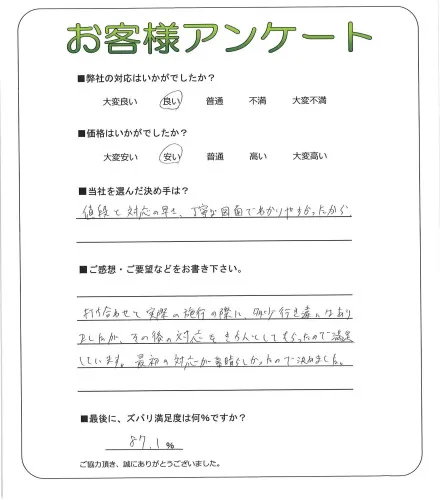 お客様アンケート
■弊社の対応はいかがでしたか？
大変良い 良い 普通 不満 大変不満
■価格はいかがでしたか？
大変安い 安い 普通 高い 大変高い
■当社を選んだ決め手は？
値段と対応の早さ、丁寧な図面でわかりやすかったから
■ご感想・ご要望などをお書き下さい。
打ち合わせと実際の施行の際に、多少行き違いはあり
ましたが、その後の対応をきちんとしてもらったので満足
しています。最初の対応が素晴らしかったので決めました。
■最後に、ズバリ満足度は何%ですか？
87.1%
ご協力頂き、誠にありがとうございました。